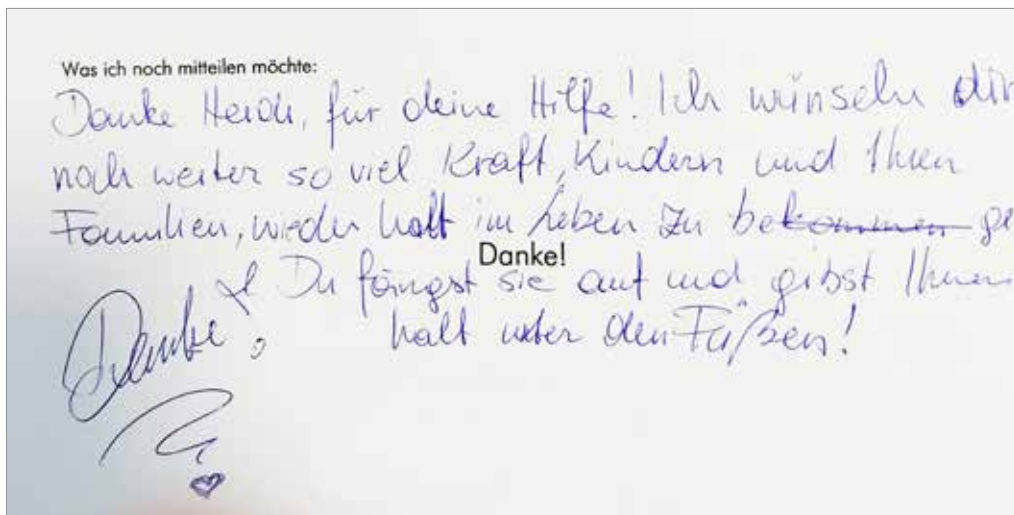 Was ich noch mitteilen möchte:
Danke Heidi, für deine Hilfe! Ich wünschn dir
noch weiter so viel Kraft, Kindern und Ihren
Familien, wieder halt im Leben zu bekommen ge
Danke!
Du fängst sie auf und gibst Ihnen
Danke! halt unter den Füßen!